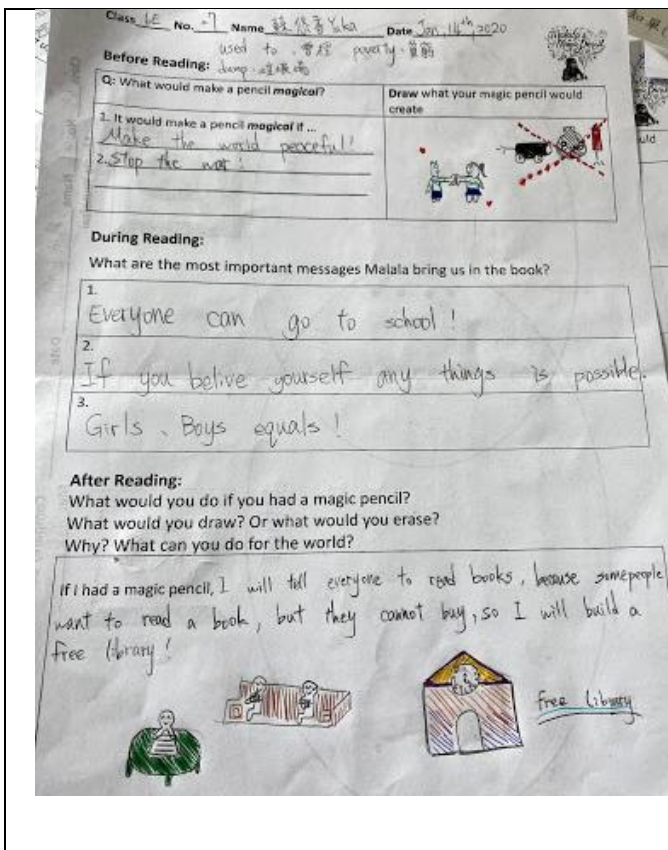 Class 6E No. 7 Name Yuka Date Jan, 14th, 2020
used to 曾經 poverty. 貧窮
Before Reading: dump. 垃圾場
Q: What would make a pencil magical?
Draw what your magic pencil would create
1. It would make a pencil magical if ...
Make the world peaceful!
2. Stop the war!
During Reading:
What are the most important messages Malala bring us in the book?
1.
Everyone can go to school!
2.
If you belive yourself any things is possible.
3.
Girls、Boys equals!
After Reading:
What would you do if you had a magic pencil?
What would you draw? Or what would you erase?
Why? What can you do for the world?
If I had a magic pencil, I will tell everyone to read books, because somepeople
want to read a book, but they cannot buy, so I will build a
free library!
free library